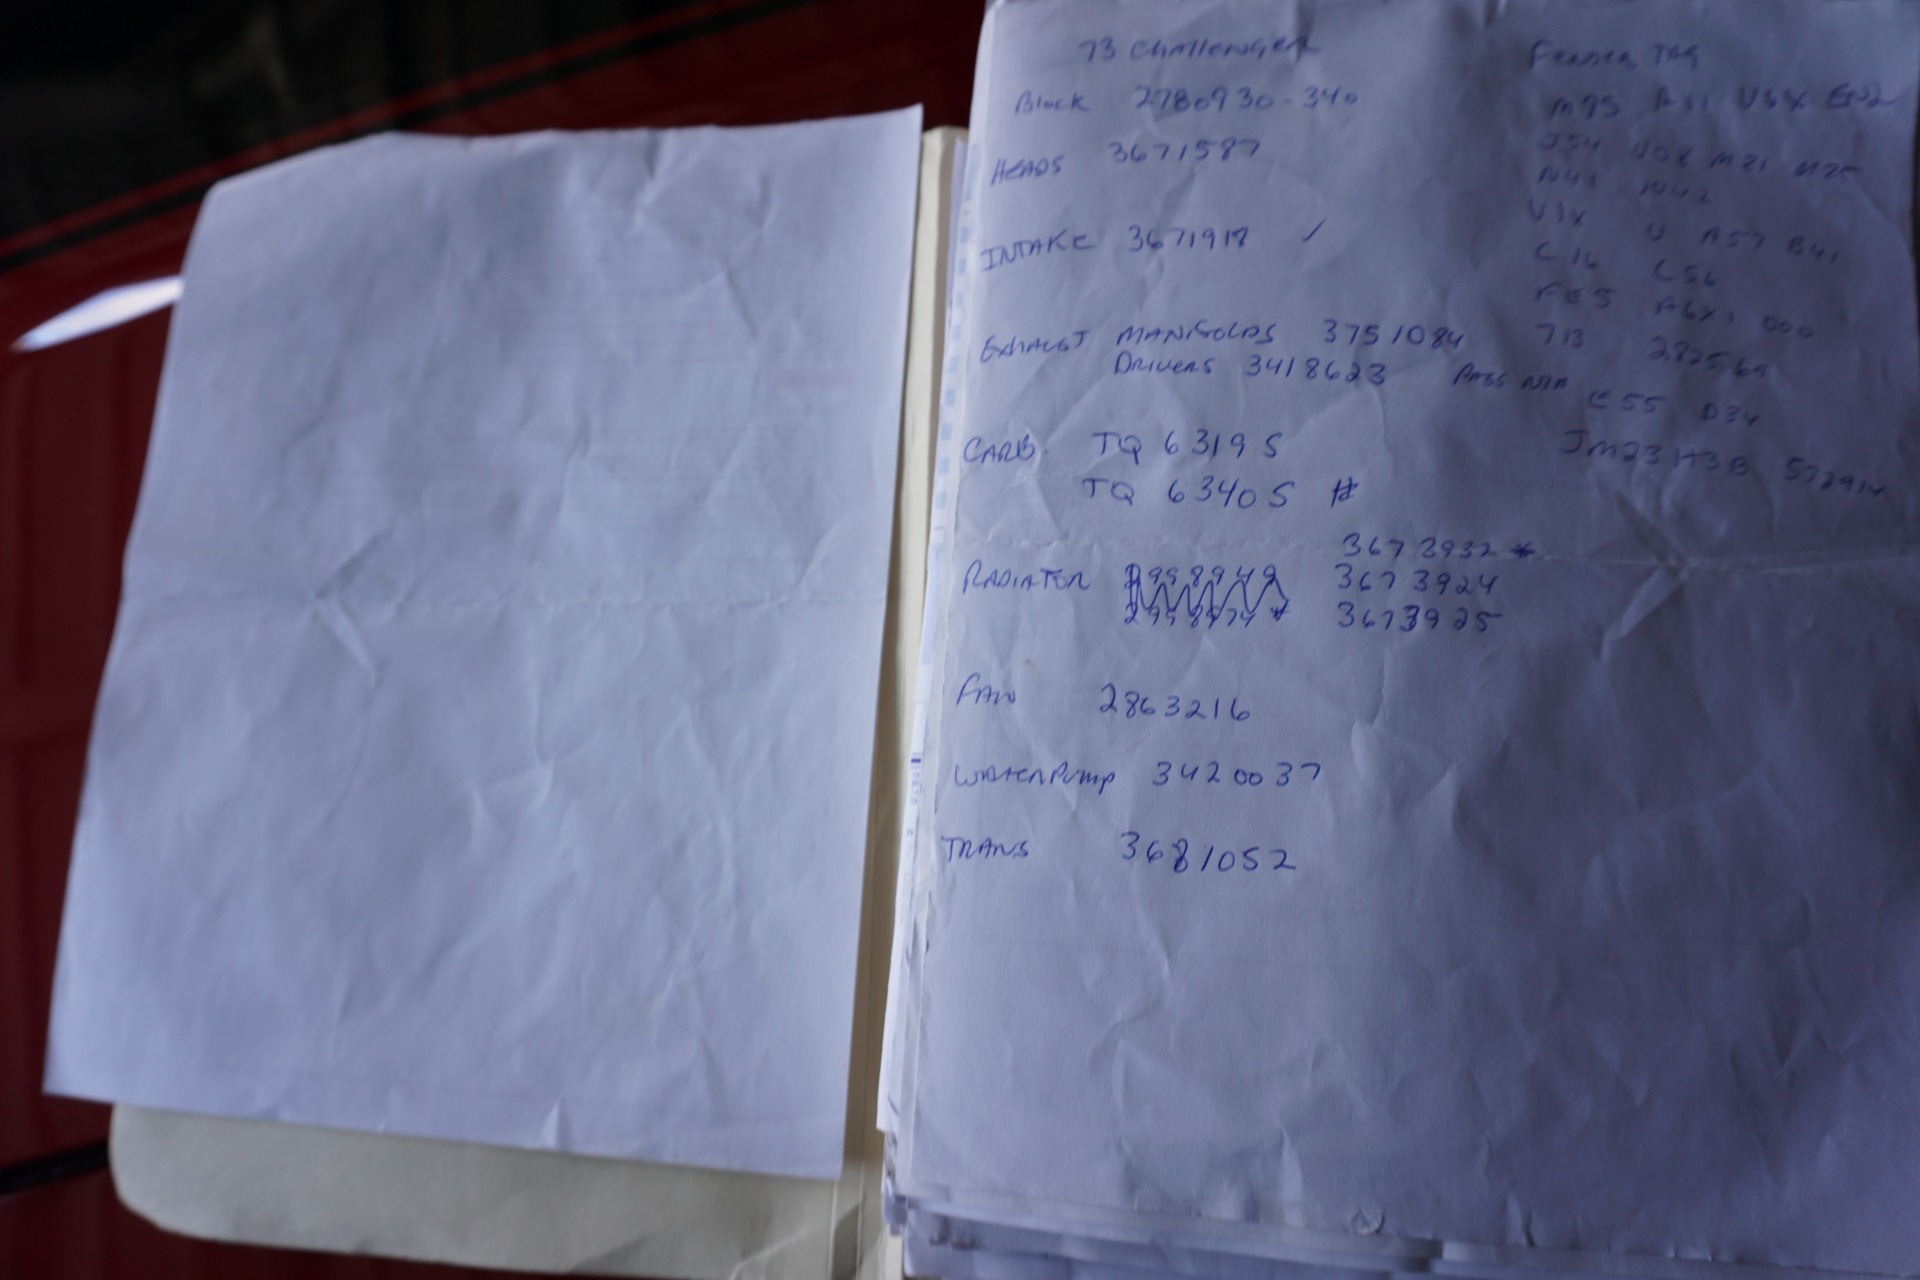 73 Challenger
Block 2780930-340
Heads 3671587
INTAKE 3671918 ✓
Exhaust Manifolds 3751084
Drivers 3418623 Pass N/A
CARB. TQ 6319 S
TQ 6340 S #
3673932 *
RADIATOR 3673924
3673925
FAN 2863216
Water Pump 3420037
TRANS 3681052
Fender Tag
M85 A11 V6X EN2
J54 J08 M21 M25
N41 N42
V1X U A57 B41
C16 C56
FE5 A6X1 000
713 282569
E55 D34
JM23H3B